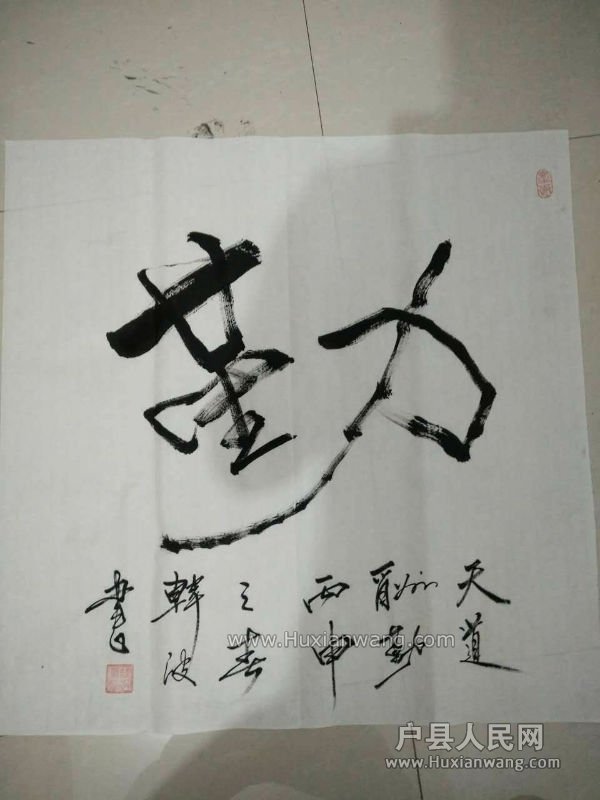 勤
天道
酬勤
丙申
之春
韩波
书
www.Huxianwang.com
户县人民网
www.Huxianwang.com